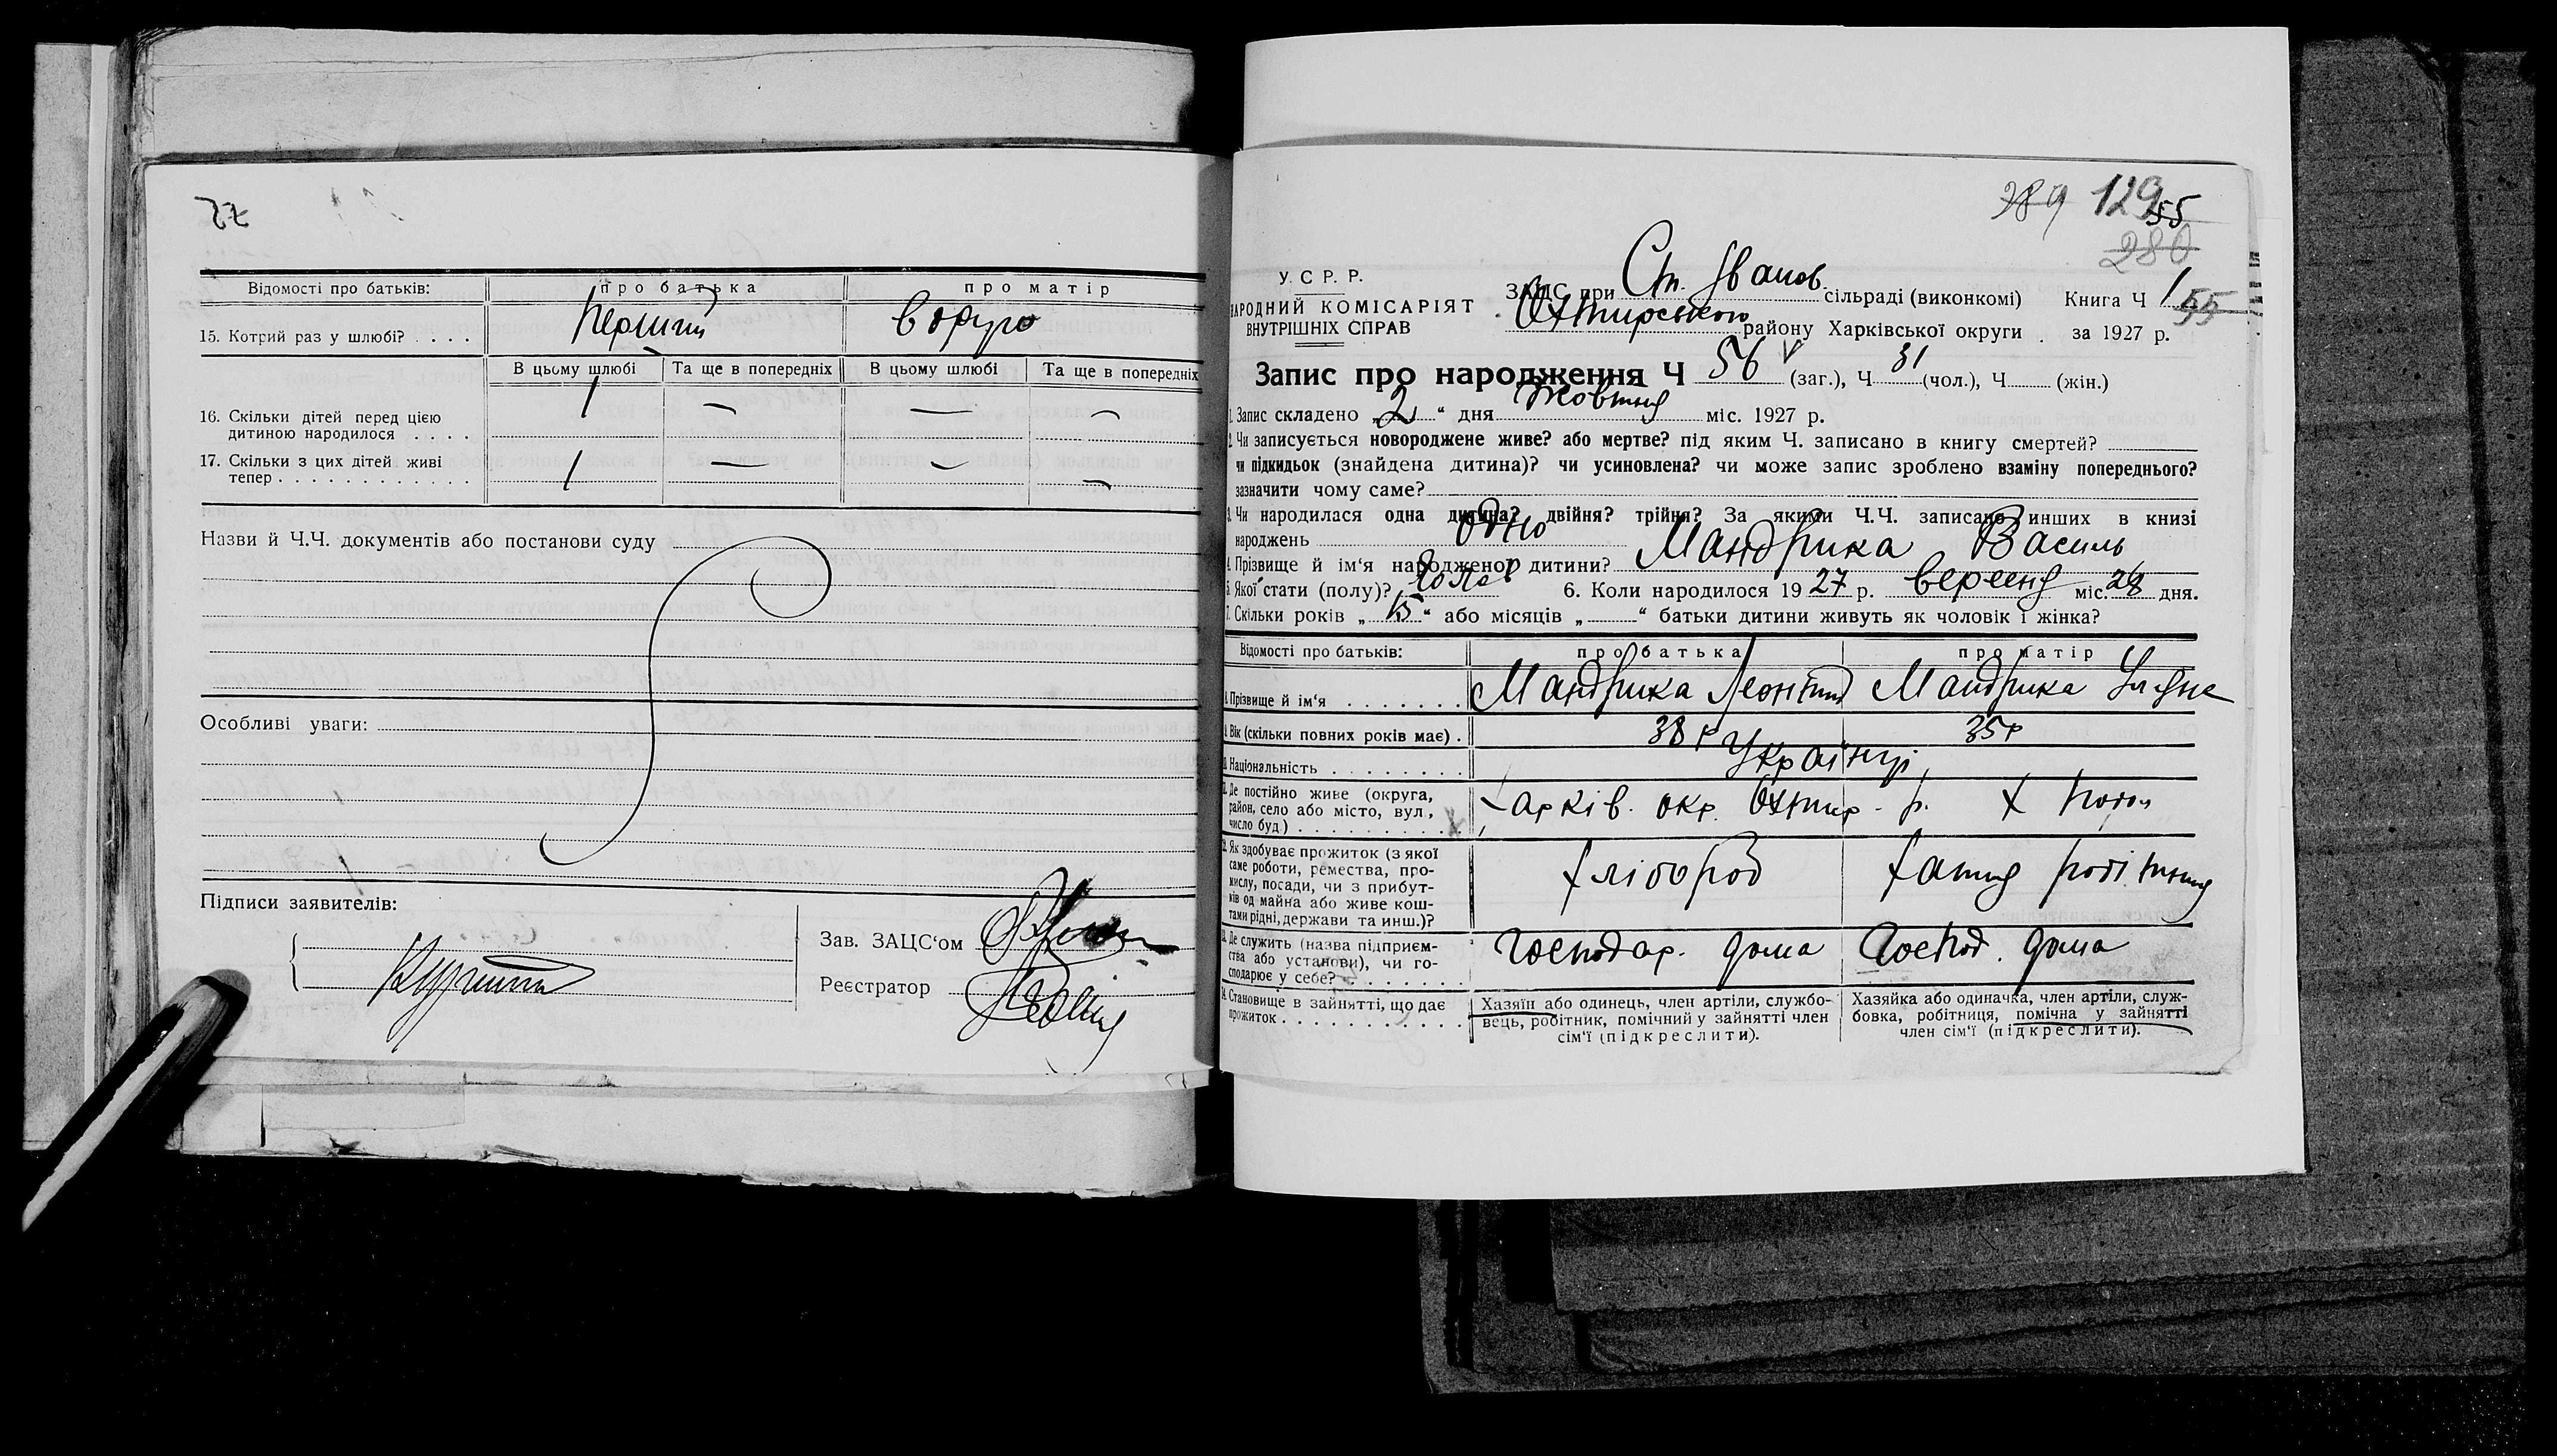 Відомості про батьків: про батька про матір
15. Котрий раз у шлюбі? . . . . Перший
В цьому шлюбі Та ще в попередніх В цьому шлюбі Та ще в попередніх
16. Скільки дітей перед цією
дитиною народилося . . . . 1 — — —
17. Скільки з цих дітей живі
тепер . . . . . . . . . . . . 1 — — —
Назви й Ч.Ч. документів або постанови суду
Особливі уваги:
Підписи заявителів:
Зав. ЗАЦС‘ом
Реєстратор
289 129 55
280
У. С. Р. Р.
НАРОДНИЙ КОМІСАРІЯТ
ВНУТРІШНІХ СПРАВ
ЗАЦС при Ст. Іванов. сільраді (виконкомі) Книга Ч 1
55
Охтирського району Харківської округи . за 1927 р.
Запис про народження Ч 56 (заг.), Ч 31 (чол.), Ч (жін.)
1. Запис складено „ 2 “ дня Жовтня міс. 1927 р.
2. Чи записується новороджене живе? або мертве? під яким Ч. записано в книгу смертей?
чи підкидьок (знайдена дитина)? чи усиновлена? чи може запис зроблено взаміну попереднього?
зазначити чому саме?
3. Чи народилася одна дитина? двійня? трійня? За якими Ч.Ч. записано инших в книзі
народжень одно
4. Прізвище й ім‘я народженої дитини? Мандрика Василь
5. Якої стати (полу)? чолов 6. Коли народилося 19 27 р. вересня міс. 28 дня.
7. Скільки років „ 15 “ або місяців „ “ батьки дитини живуть як чоловік і жінка?
Відомості про батьків: про батька про матір
8. Прізвище й ім‘я . . . . . . . Мандрика Леонтий Мандрика
9. Вік (скільки повних років має) . 38 р 35 р
10. Національність . . . . . . . . Українці
11. Де постійно живе (округа,
район, село або місто, вул.,
число буд.) . . . . . . . . . Харків. окр. Охтир. р. х
12. Як здобуває прожиток (з якої
саме роботи, ремества, про-
мислу, посади, чи з прибут-
ків од майна або живе кош-
тами рідні, держави та инш.)? хлібороб хатня
13. Де служить (назва підприєм-
ства або установи), чи го-
сподарює у себе? . . . . . . . господар. дома Господ. дома
14. Становище в зайнятті, що дає
прожиток . . . . . . . . . . .
Хазяїн або одинець, член артіли, службо-
вець, робітник, помічний у зайнятті член
сім‘ї (підкреслити).
Хазяйка або одиначка, член артіли, служ-
бовка, робітниця, помічна у зайнятті
член сім‘ї (підкреслити).